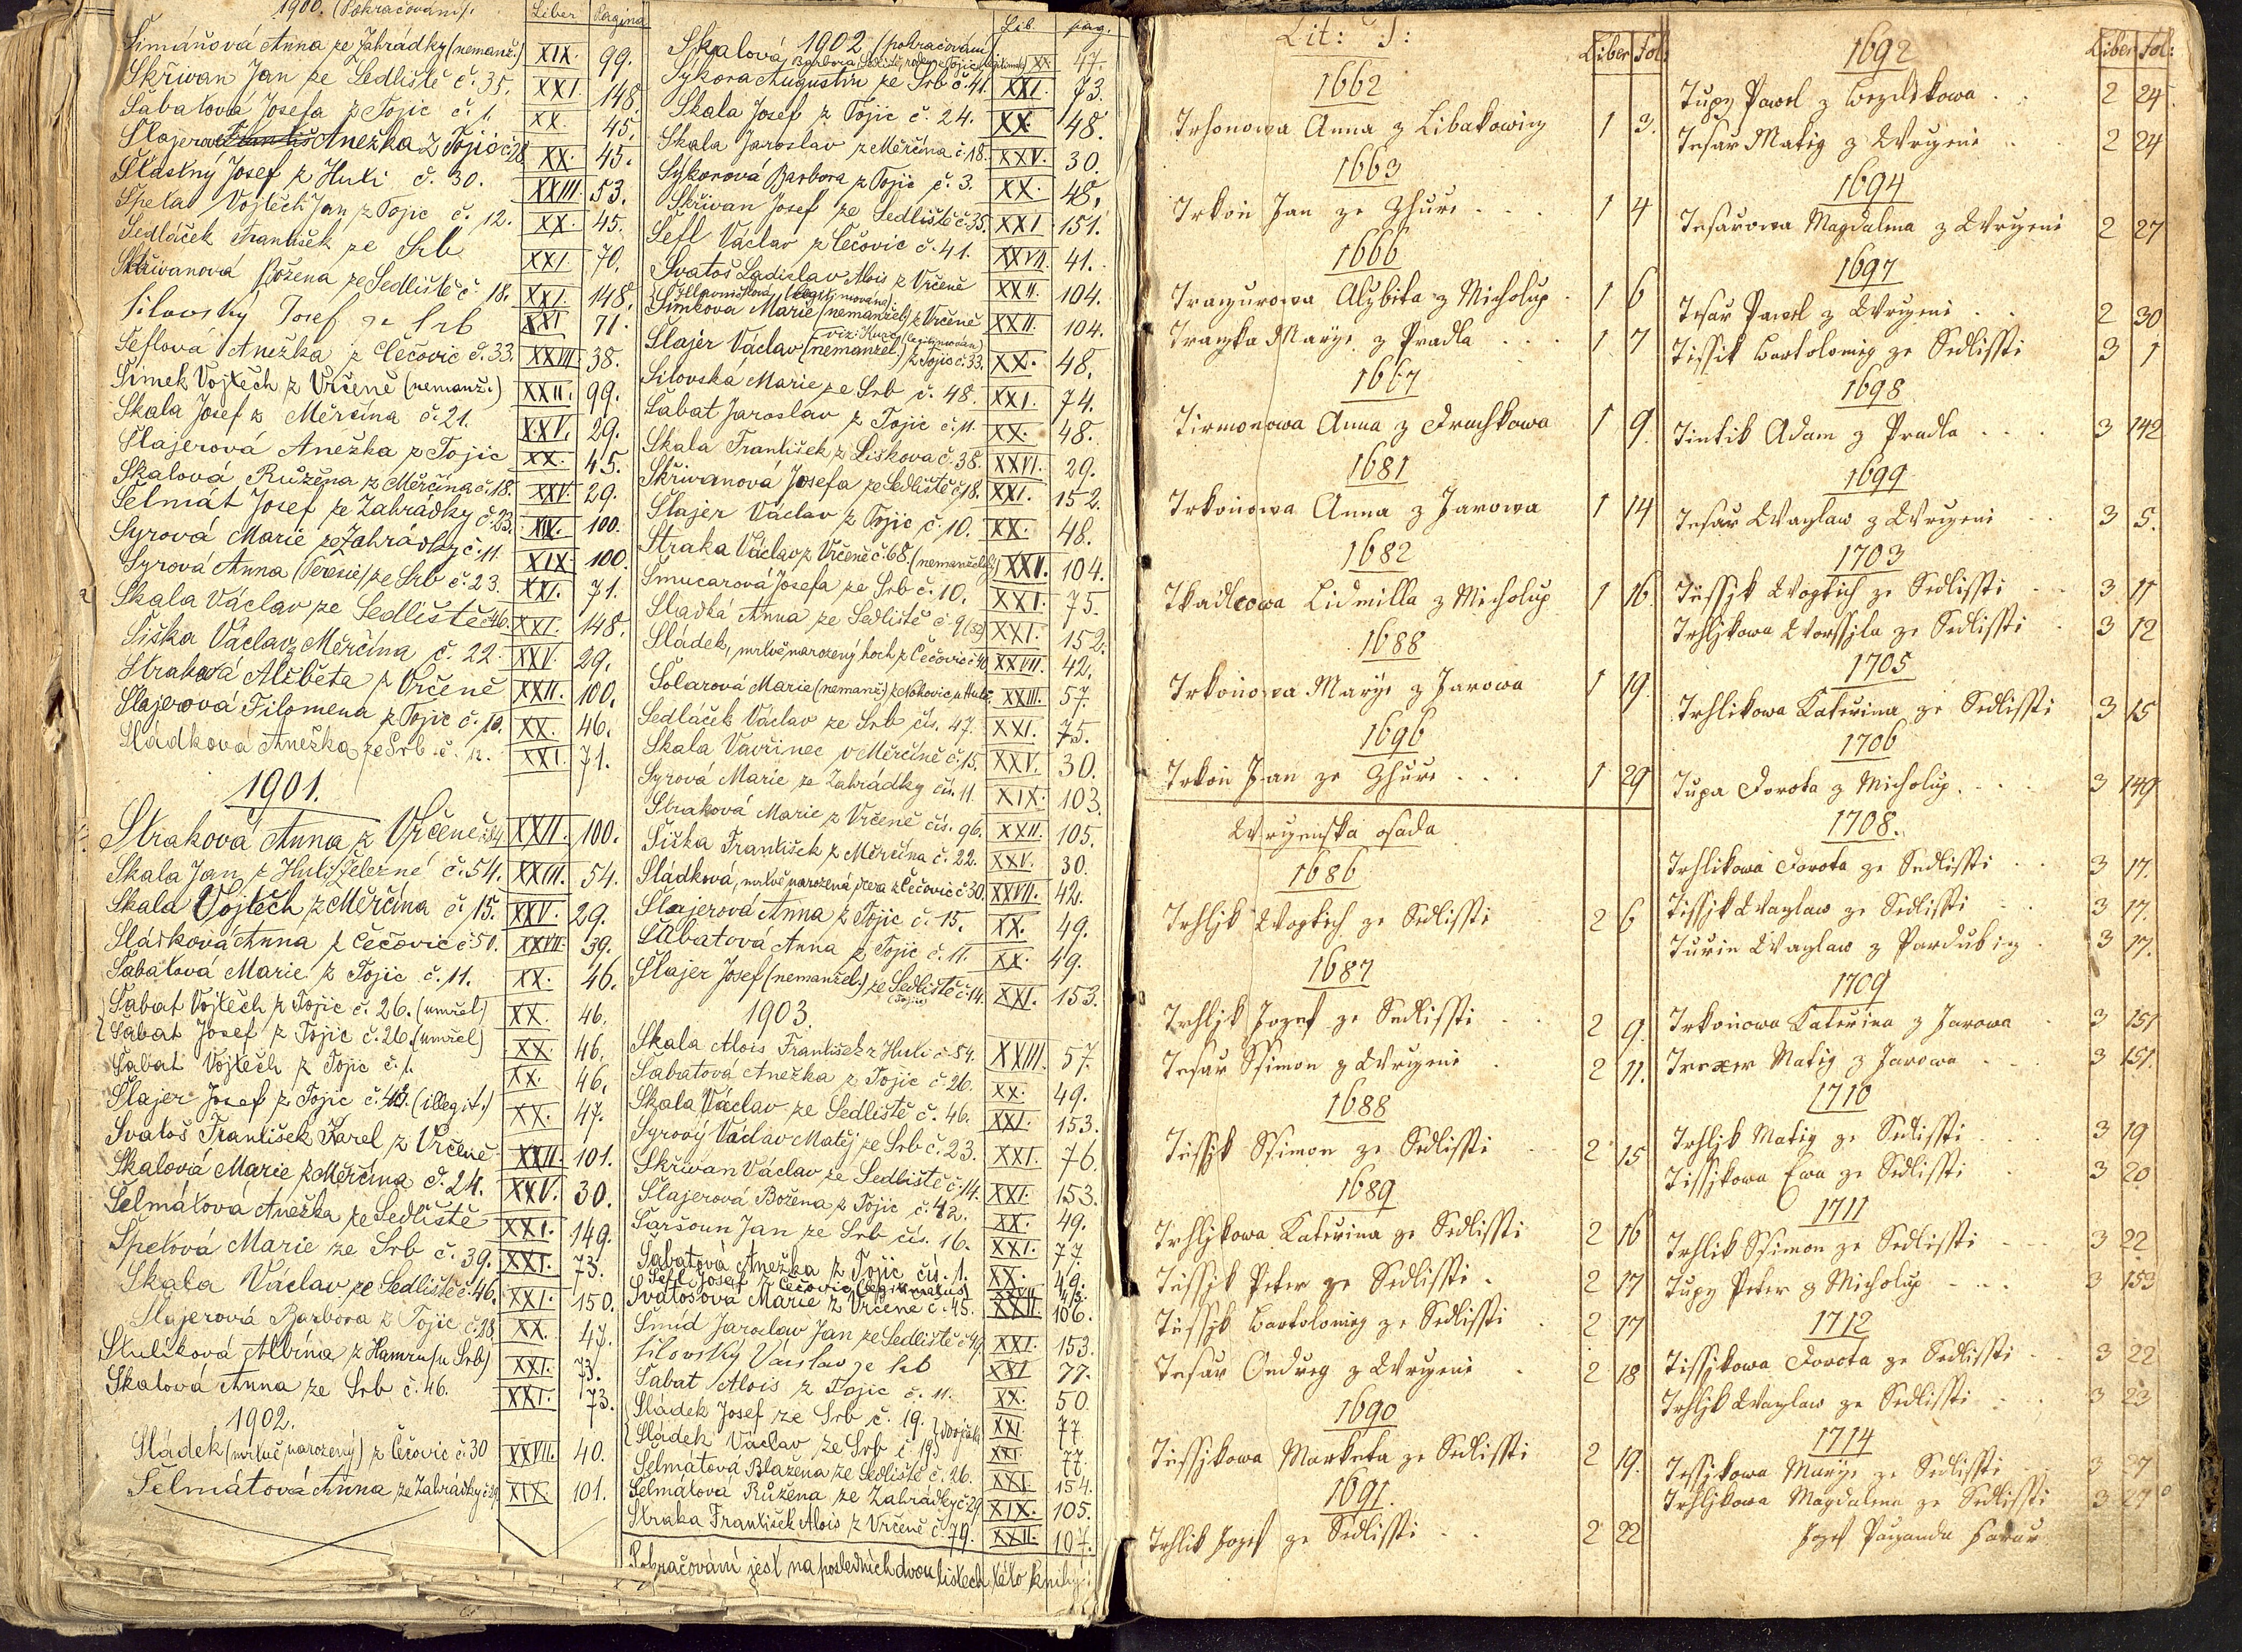 1900. (Pokračování).
Liber Pagina
Šimánová Anna ze Zahrádky (nemanž.) XIX. 99.
Skřivan Jan ze Sedliště č. 35. XXI. 148.
Šabatová Josefa z Tojic č. 1. XX. 45.
Šlajerová Anežka z Tojic č. 28. XX. 45.
Šťastný Josef z Huti č. 30. XXIII. 53.
Špeta Vojtěch Jan z Tojic č. 12. XX. 45.
Sedláček František ze Srb XXI. 70.
Skřivanová Božena ze Sedliště č. 18. XXI. 148.
Silovský Josef ze Srb XXI 71.
Šeflová Anežka z Čečovic č. 33. XXVII. 38.
Šimek Vojtěch z Vrčeně (nemanž.) XXII. 99.
Skala Josef z Měrčína č. 21. XXV. 29.
Šlajerová Anežka z Tojic XX. 45.
Skalová Růžena z Měrčína č. 18. XXV. 29.
Šelmát Josef ze Zahrádky č. 23. XIX. 100.
Syrová Marie ze Zahrádky č. 11. XIX. 100.
Syrová Anna (Terezie) ze Srb č. 23. XXI. 71.
Skala Václav ze Sedliště č. 46. XXI. 148.
Šiška Václav z Měrčína č. 22. XXV. 29.
Straková Alžběta z Vrčeně XXII. 100.
Šlajerová Filomena z Tojic č. 10. XX. 46.
Sládková Anežka ze Srb č. 12. XXI. 71.
1901.
Straková Anna z Vrčeně č. 84 XXII. 100.
Skala Jan z Huti Železné č. 54. XXIII. 54.
Skala Vojtěch z Měrčína č. 15. XXV. 29.
Sládková Anna z Čečovic č. 50. XXVII. 39.
Šabatová Marie z Tojic č. 11. XX. 46.
Šabat Vojtěch z Tojic č. 26. (umřel) XX. 46.
Šabat Josef z Tojic č. 26. (umřel) XX. 46.
Šabat Vojtěch z Tojic č. 1. XX. 46.
Šlajer Josef z Tojic (illegit.) XX. 47.
Svatoš František Karel z Vrčeně XXII. 101.
Skalová Marie z Měrčína č. 24. XXV. 30.
Šelmátová Anežka ze Sedliště XXI. 149.
Špetová Marie ze Srb č. 39. XXI. 73.
Skala Václav ze Sedliště č. 46. XXI. 150.
Šlajerová Barbora z Tojic č. 28 XX. 47.
Stulíková Albína z Hamru (u Srb) XXI. 73.
Skalová Anna ze Srb č. 46. XXI. 73.
1902.
Sládek (mrtvě narozený) z Čečovic č. 30 XXVII. 40.
Šelmátová Anna ze Zahrádky č. 29 XIX. 101.
Lib. pag.
1902 (pokračování)
Skalová Barbora XX 47.
Sýkora Augustin ze Srb č. 41. XXI. 73.
Skala Josef z Tojic č. 24. XX. 48.
Skala Jaroslav z Měrčína č. 18. XXV. 30.
Sýkorová Barbora z Tojic č. 3. XX. 48.
Skřivan Josef ze Sedliště č. 35. XXI 151.
Šefl Václav z Čečovic č. 41. XXVII. 41.
Svatoš Ladislav Alois z Vrčeně XXII. 104.
(legitimována)
Šimková Marie (nemanžel.) z Vrčeně XXII. 104.
(legitimován)
Šlajer Václav (nemanžel.) z Tojic č. 33. XX. 48.
Silovská Marie ze Srb č. 48. XXI. 74.
Šabat Jaroslav z Tojic č. 11. XX. 48.
Skala František z Liškova č. 38. XXVI. 29.
Skřivanová Josefa ze Sedliště č. 18. XXI. 152.
Šlajer Václav z Tojic č. 10. XX. 48.
Straka Václav z Vrčeně č. 68. (nemanželský) 104.
Šmucarová Josefa ze Srb č. 10. XXI. 75.
Sladká Anna ze Sedliště č. 9 XXI. 152.
Sládek, mrtvě narozený hoch z Čečovic č. 40 XXVII. 42.
Solarová Marie (nemanž.) XXIII. 57.
Sedláček Václav ze Srb čís. 47. XXI. 75.
Skala Vavřinec v Měrčíně č. 15. XXV. 30.
Syrová Marie ze Zahrádky čís. 11. XIX. 103.
Straková Marie z Vrčeně čís. 96. XXII. 105.
Šiška František z Měrčína č. 22. XXV. 30.
Sládková, mrtvě narozená dcera z Čečovic č. 30. XXVII. 42.
Šlajerová Anna z Tojic č. 15. XX. 49.
Šabatová Anna z Tojic č. 11. XX. 49.
Šlajer Josef (nemanžel.) ze Sedliště č. 14. XXI. 153.
1903.
Skala Alois František z Huti č. 54. XXIII. 57.
Šabatová Anežka z Tojic č. 26. XX. 49.
Skala Václav ze Sedliště č. 46. XXI. 153.
Syrový Václav Matěj ze Srb č. 23. XXI. 76.
Skřivan Václav ze Sedliště č. 14. XXI. 153.
Šlajerová Božena z Tojic č. 42. XX. 49.
Saršoun Jan ze Srb čís. 16. XXI. 77.
Šabatová Anežka z Tojic čís. 1. XX. 49.
Šefl Josef z Čečovic (legitimatus) XXVII 45.
Svatošová Marie z Vrčeně č. 45. XXII. 106.
Šmíd Jaroslav Jan ze Sedliště č. 49 XXI. 153.
Silovský Václav ze Srb XXI 77.
Šabat Alois z Tojic č. 11. XX. 50.
Sládek Josef ze Srb č. 19. } dvojčata XXI. 77
Sládek Václav ze Srb č. 19. XXI. 77.
Šelmátová Blažena ze Sedliště č. 26. XXI. 154.
Šelmátová Růžena ze Zahrádky č. 29 XIX. 105.
Straka František Alois z Vrčeně č. 79. XXII. 107.
Pokračování jest na posledních dvou listech této knihy.
Lit: T:
Liber Fol:
1662
Trhonowa Anna z Libakowicz 1 3.
1663
Trkon Jan ze Zhurе 1 4
1666
Alzbita z Micholup 1 6
Maryе z Pradla 1 7
1667
Tirmonowa Anna z Drachkowa 1 9.
1681
Trkonowa Anna z Jarowa 1 14
1682
Tkadlcowa Lidmilla z Micholup 1 16.
1688
Trkonowa Marye z Jarowa 1 19.
1696
Trkon Jan ze Zhure 1 29
Wrczenska osada
1686
Trhljk Wogtich ze Sedlissti 2 6
1687
Trhljk Jozef ze Sedlissti 2 9.
Tesar Ssimon z Wrczeni 2 11.
1688
Tussjk Ssimon ze Sedlissti 2 15
1689
Trhljkowa Katerina ze Sedlissti 2 16
Tussjk Peter ze Sedlissti 2 17
Tussjk Bartolomig ze Sedlissti 2 17
Tesar Ondreg z Wrczeni 2 18
1690
Tussjkowa Marketa ze Sedlissti 2 19.
1691.
Trhlik Jozef ze Sedlissti 2 22
Liber Fol:
1692
Tupy Pawel z 2 24.
Tesar Matig z Wrczeni 2 24
1694
Tesarowa Magdalena z Wrczeni 2 27
1697
Tesar Pawel z Wrczeni 2 30
Tissik Bartolomig ze Sedlissti 3 1
1698
Adam z Pradla 3 142
1699
Tesar Waczlaw z Wrczeni 3 5.
1703
Tussjk Wogtich ze Sedlissti 3 11
Trhljkowa Worssila ze Sedlissti 3 12
1705
Trhlikowa Katerina ze Sedlissti 3 15
1706
Tupa Dorota z Micholup 3 149
1708.
Trhlikowa Dorota ze Sedlissti 3 17.
Tissjk Waczlaw ze Sedlissti 3 17.
Waczlaw z Pardubicz 3 17.
1709
Trkonowa Katerina z Jarowa 3 151
Matig z Jarowa 3 151.
1710
Trhljk Matig ze Sedlissti 3 19
Tissjkowa Ewa ze Sedlissti 3 20
1711
Trhlik Ssimon ze Sedlissti 3 22
Tupy Peter z Micholup 3 153
1712
Tissjkowa Dorota ze Sedlissti 3 22
Trhljk Waczlaw ze Sedlissti 3 23
1714
Tissjkowa Marye ze Sedlissti 3 27
Trhljkowa Magdalena ze Sedlissti 3 27
Jozef